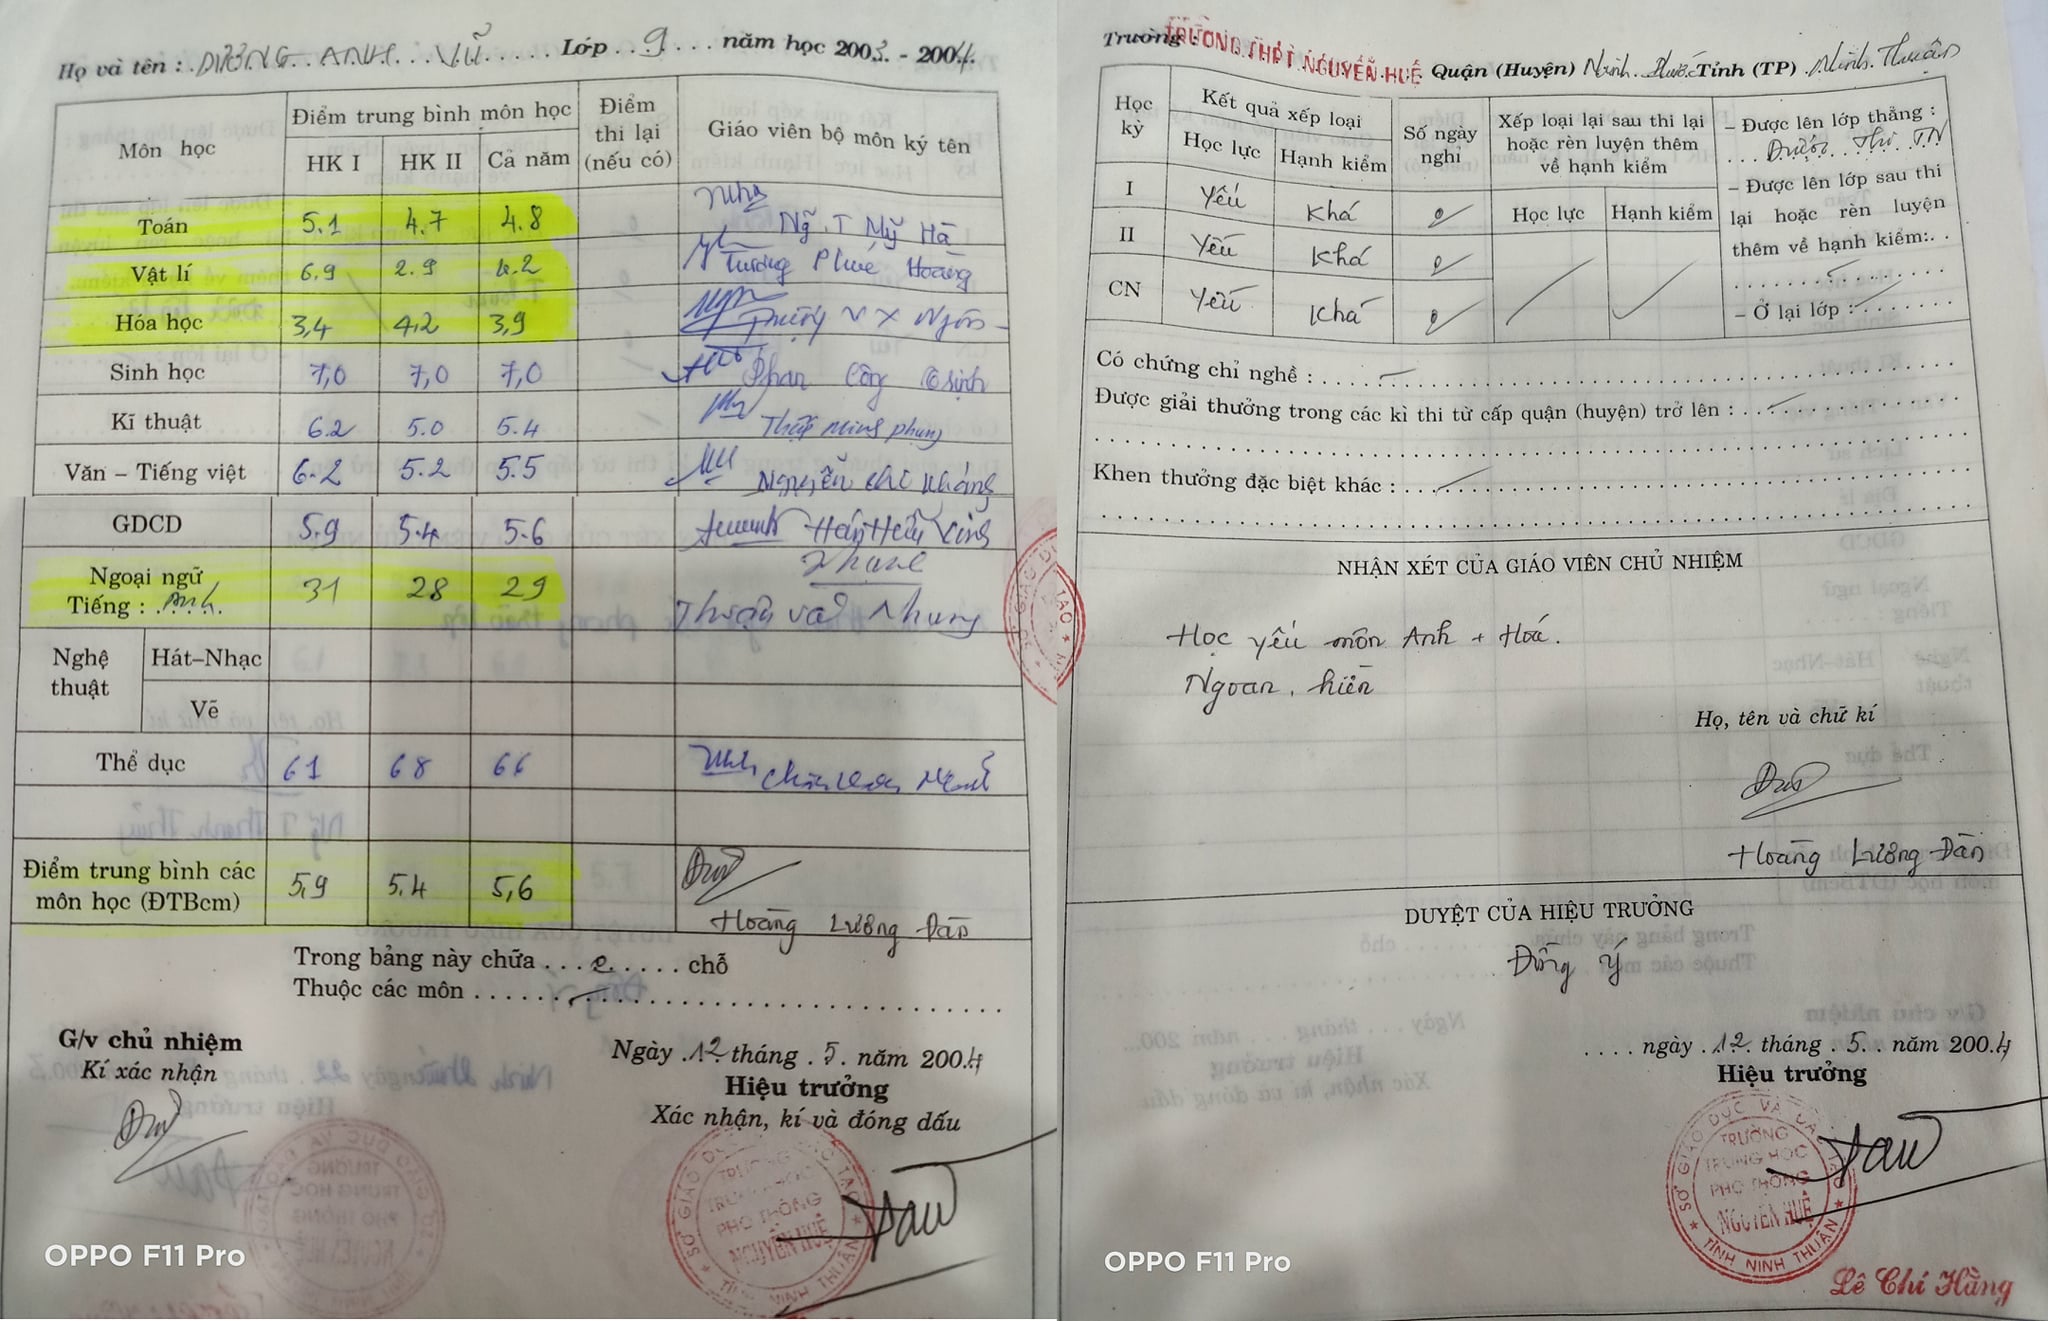 Họ và tên : DƯƠNG ANH VŨ Lớp 9 năm học 2003 - 2004
Môn học
Điểm trung bình môn học
HK I HK II Cả năm
Điểm thi lại (nếu có)
Giáo viên bộ môn ký tên
Toán 5.1 4.7 4.8 Ng̃ T Mỹ Hà
Vật lí 6.9 2.9 4.2
Hóa học 3,4 4,2 3,9
Sinh học 7,0 7,0 7,0 Phan Công
Kĩ thuật 6.2 5.0 5.4
Văn – Tiếng việt 6.2 5.2 5.5 Nguyễn Chí Kháng
GDCD 5.9 5.4 5.6
Ngoại ngữ
Tiếng : Anh 31 28 29
Nghệ thuật
Hát–Nhạc
Vẽ
Thể dục 61 68 66
Điểm trung bình các
môn học (ĐTBcm) 5,9 5.4 5,6
Hoàng Lương Đàn
Trong bảng này chữa . . . 0 . . . . . chỗ
Thuộc các môn
G/v chủ nhiệm
Kí xác nhận
Ngày 12 tháng 5 năm 2004
Hiệu trưởng
Xác nhận, kí và đóng dấu
SỞ GIÁO DỤC VÀ ĐÀO TẠO
TRƯỜNG
TRUNG HỌC
PHỔ THÔNG
NGUYỄN HUỆ
TỈNH NINH THUẬN
OPPO F11 Pro
Trường TRƯỜNG THPT NGUYỄN HUỆ Quận (Huyện) Ninh Phước Tỉnh (TP) Ninh Thuận
Học kỳ
Kết quả xếp loại
Học lực Hạnh kiểm
Số ngày nghỉ
Xếp loại lại sau thi lại
hoặc rèn luyện thêm
về hạnh kiểm
Học lực Hạnh kiểm
I Yếu Khá 0
II Yếu Khá 0
CN Yếu Khá 0
– Được lên lớp thẳng :
Được Thi TN
– Được lên lớp sau thi
lại hoặc rèn luyện
thêm về hạnh kiểm:
– Ở lại lớp :
Có chứng chỉ nghề :
Được giải thưởng trong các kì thi từ cấp quận (huyện) trở lên :
Khen thưởng đặc biệt khác :
NHẬN XÉT CỦA GIÁO VIÊN CHỦ NHIỆM
Học yếu môn Anh + Hoá.
Ngoan, hiền
Họ, tên và chữ kí
Hoàng Lương Đàn
DUYỆT CỦA HIỆU TRƯỞNG
Đồng ý
ngày 12 tháng 5 năm 2004
Hiệu trưởng
SỞ GIÁO DỤC VÀ ĐÀO TẠO
TRƯỜNG
TRUNG HỌC
PHỔ THÔNG
NGUYỄN HUỆ
TỈNH NINH THUẬN
Lê Chí Hằng
OPPO F11 Pro